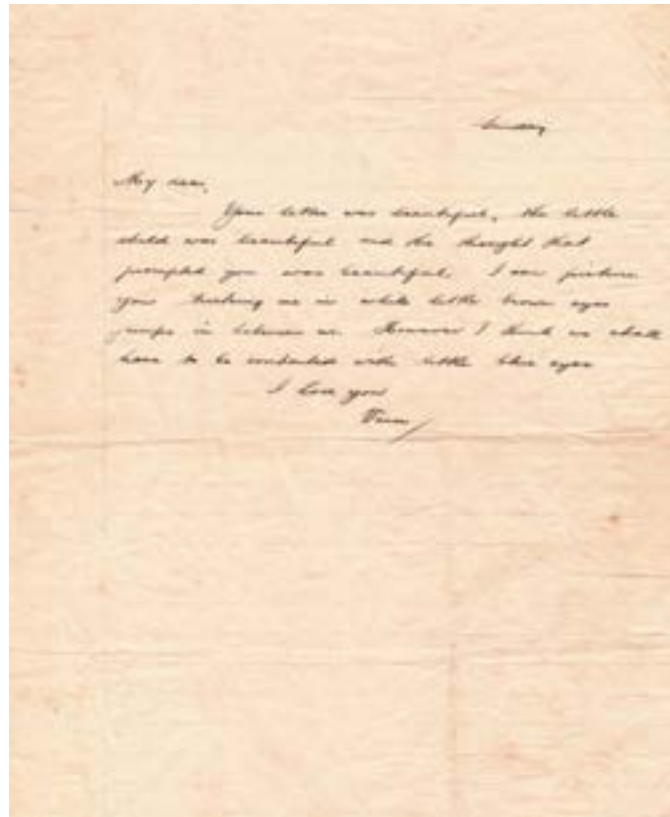 Sunday
My dear,
Your letter was beautiful, the little
child was beautiful and the thought that
prompted you was beautiful. I can picture
you tucking me in while little brown eyes
jumps in between us. However I think we shall
have to be contented with little blue eyes
I love you